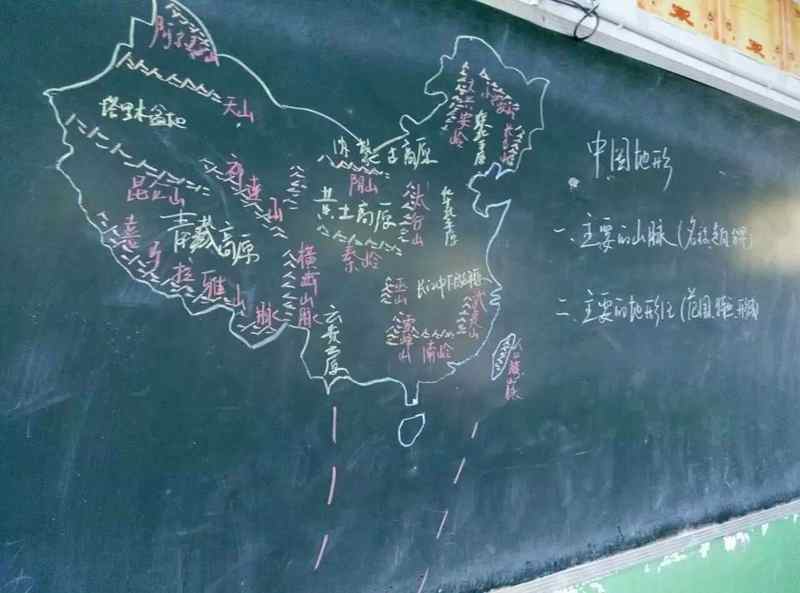 天山
塔里木盆地
昆仑山
祁连山
青藏高原
喜马拉雅山脉
横断山脉
内蒙古高原
阴山
黄土高原
秦岭
太行山
华北平原
大兴安岭
小兴安岭
东北平原
长白山
巫山
长江中下游平原
武夷山
雪峰山
南岭
云贵高原
台湾山脉
中国地形
一、主要的山脉
二、主要的地形区